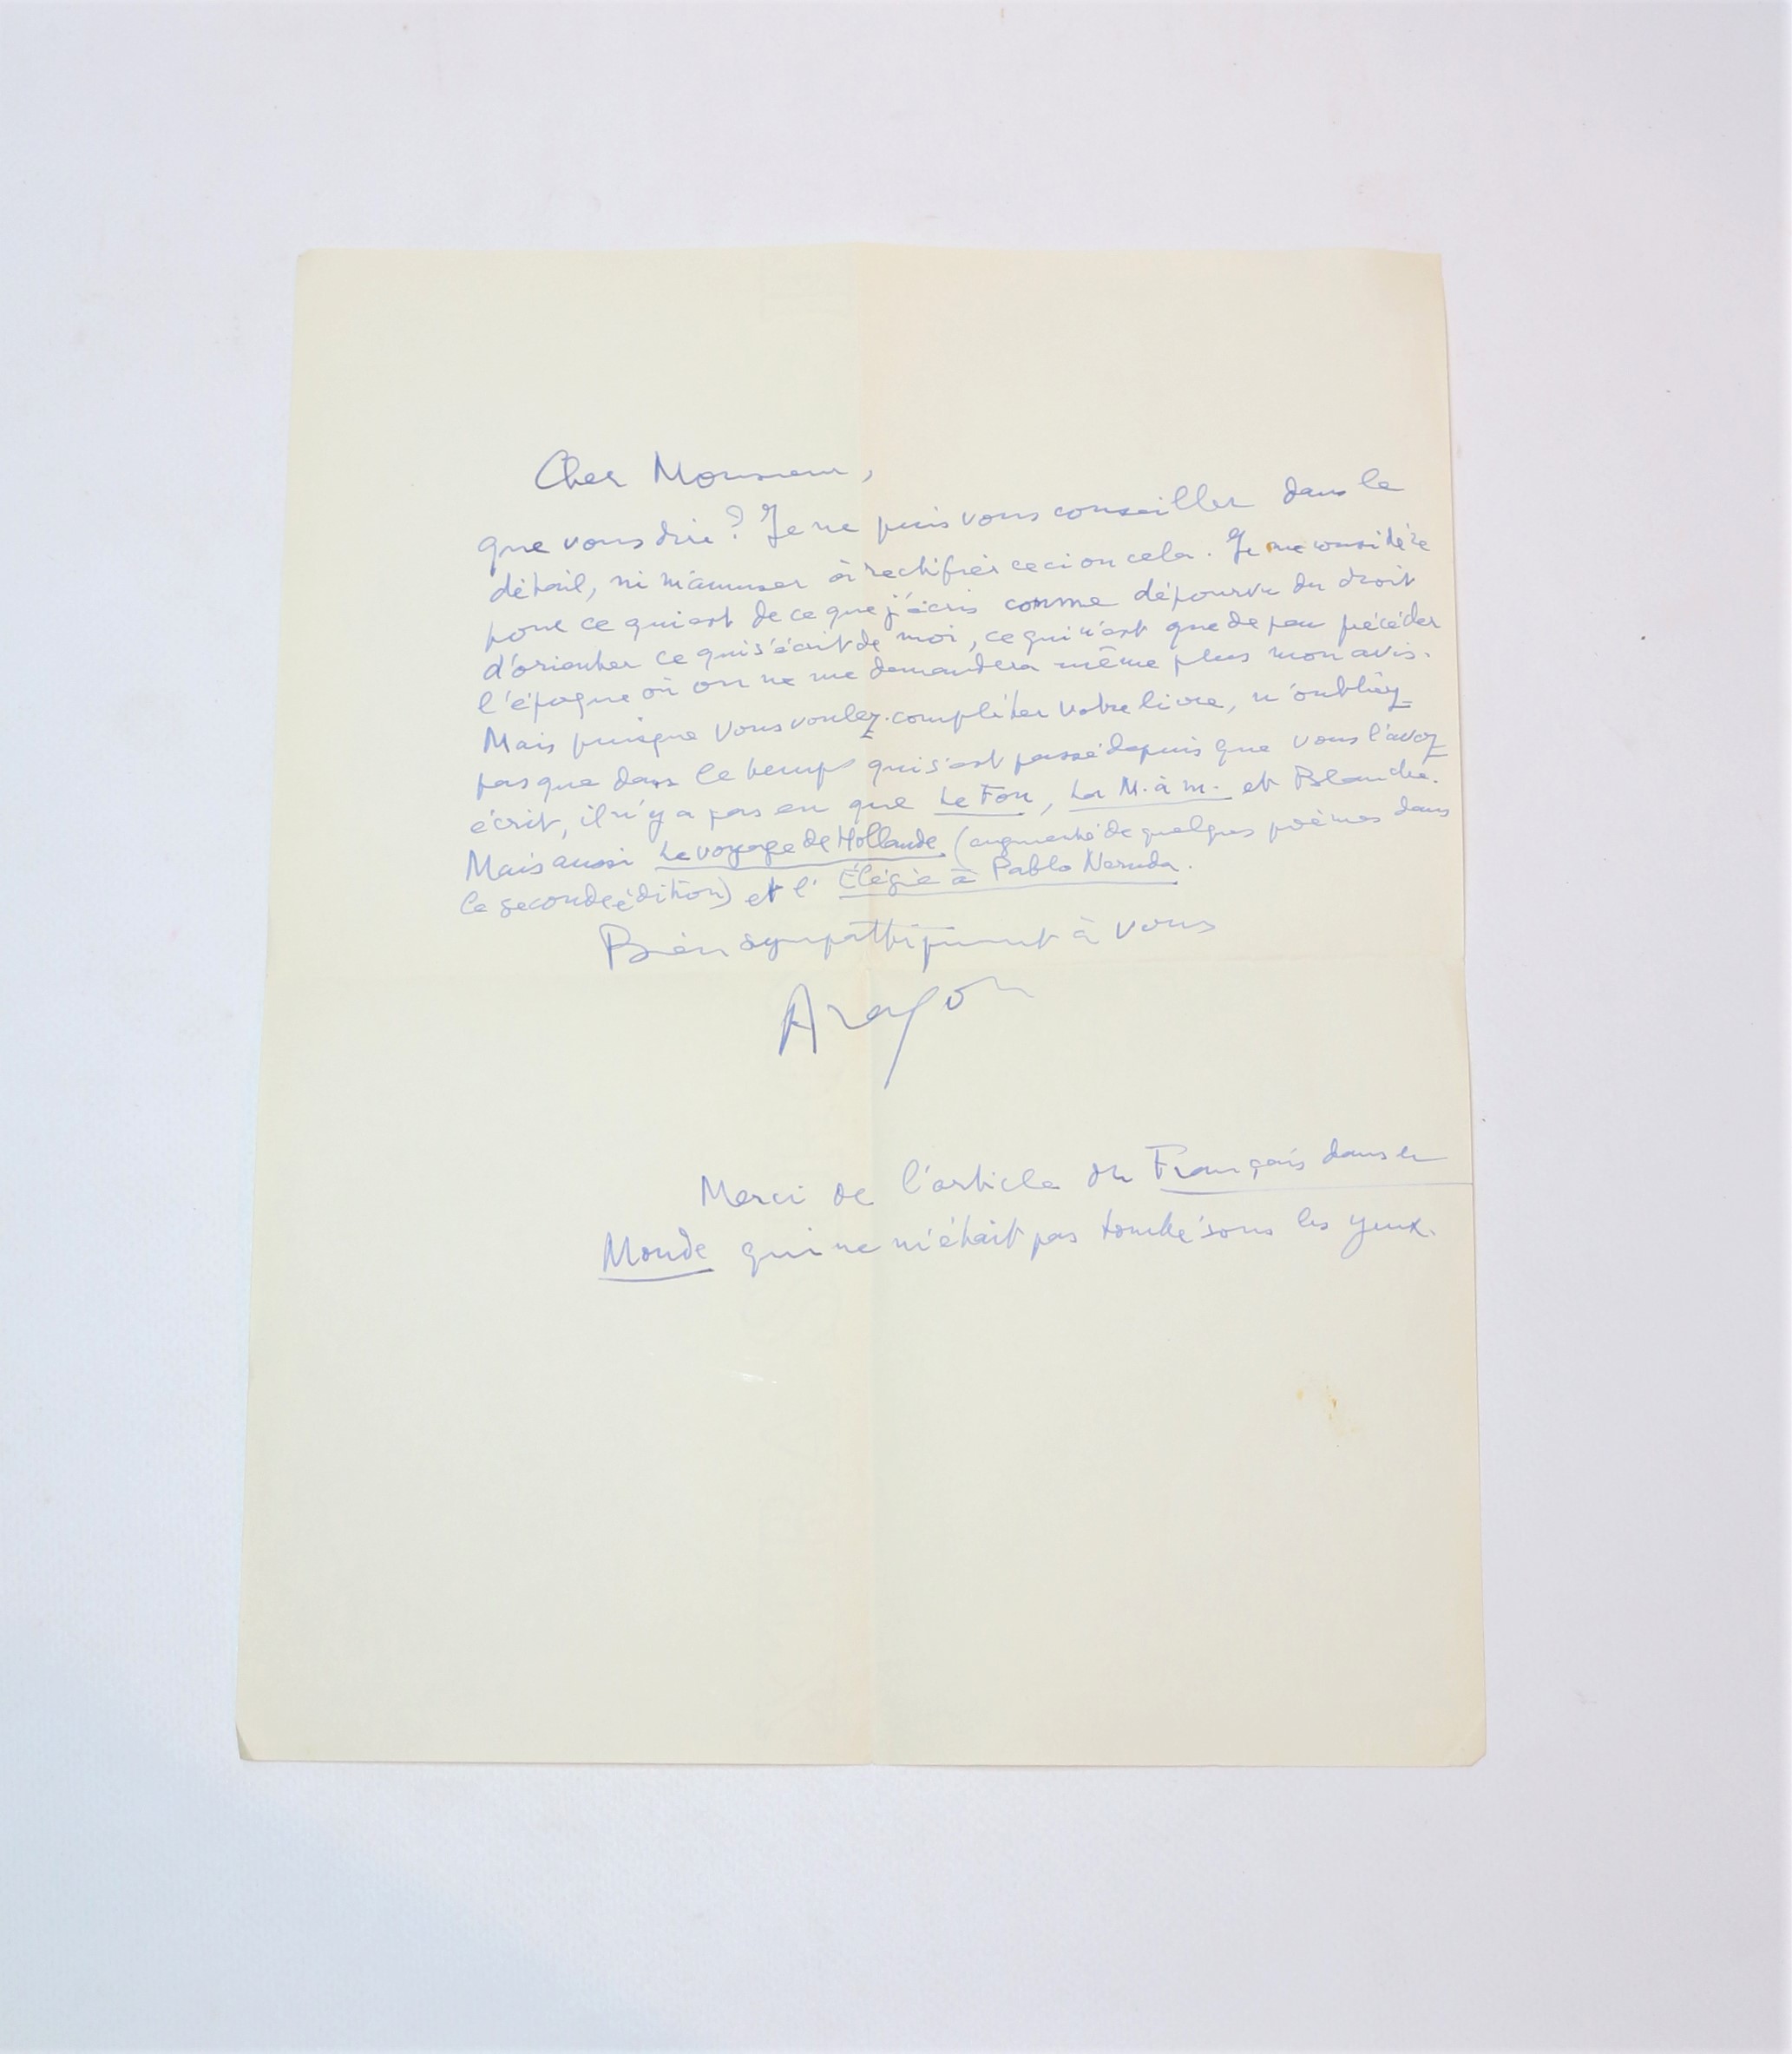 Cher Monsieur,
que vous dire ? Je ne puis vous conseiller dans le
détail, ni m'amuser à rectifier ceci ou cela. Je me considère
pour ce qui est de ce que j'écris comme dépourvu du droit
d'orienter ce qui s'écrit de moi, ce qui n'est que de peu précéder
l'époque où on ne me demandera même plus mon avis.
Mais puisque vous voulez compléter votre livre, n'oubliez
pas que dans le temps qui s'est passé depuis que vous l'avez
écrit, il n'y a pas eu que Le Fou, La M. à m. et Blanche.
Mais aussi Le voyage de Hollande (augmenté de quelques poèmes dans
la seconde édition) et l' Élégie à Pablo Neruda.
Bien sympathiquement à vous
Aragon
Merci de l'article du Français dans le
Monde qui ne m'était pas tombé sous les yeux.